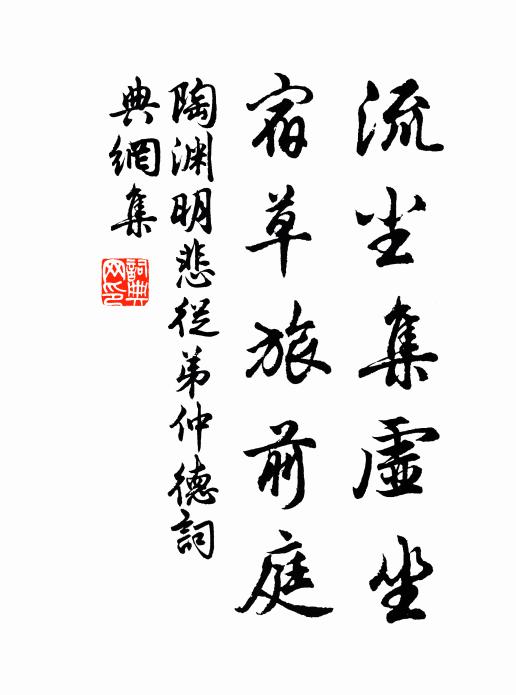 流尘集虚坐
宿草旅前庭
陶渊明悲從弟仲德詞
典網集
詞典
网印